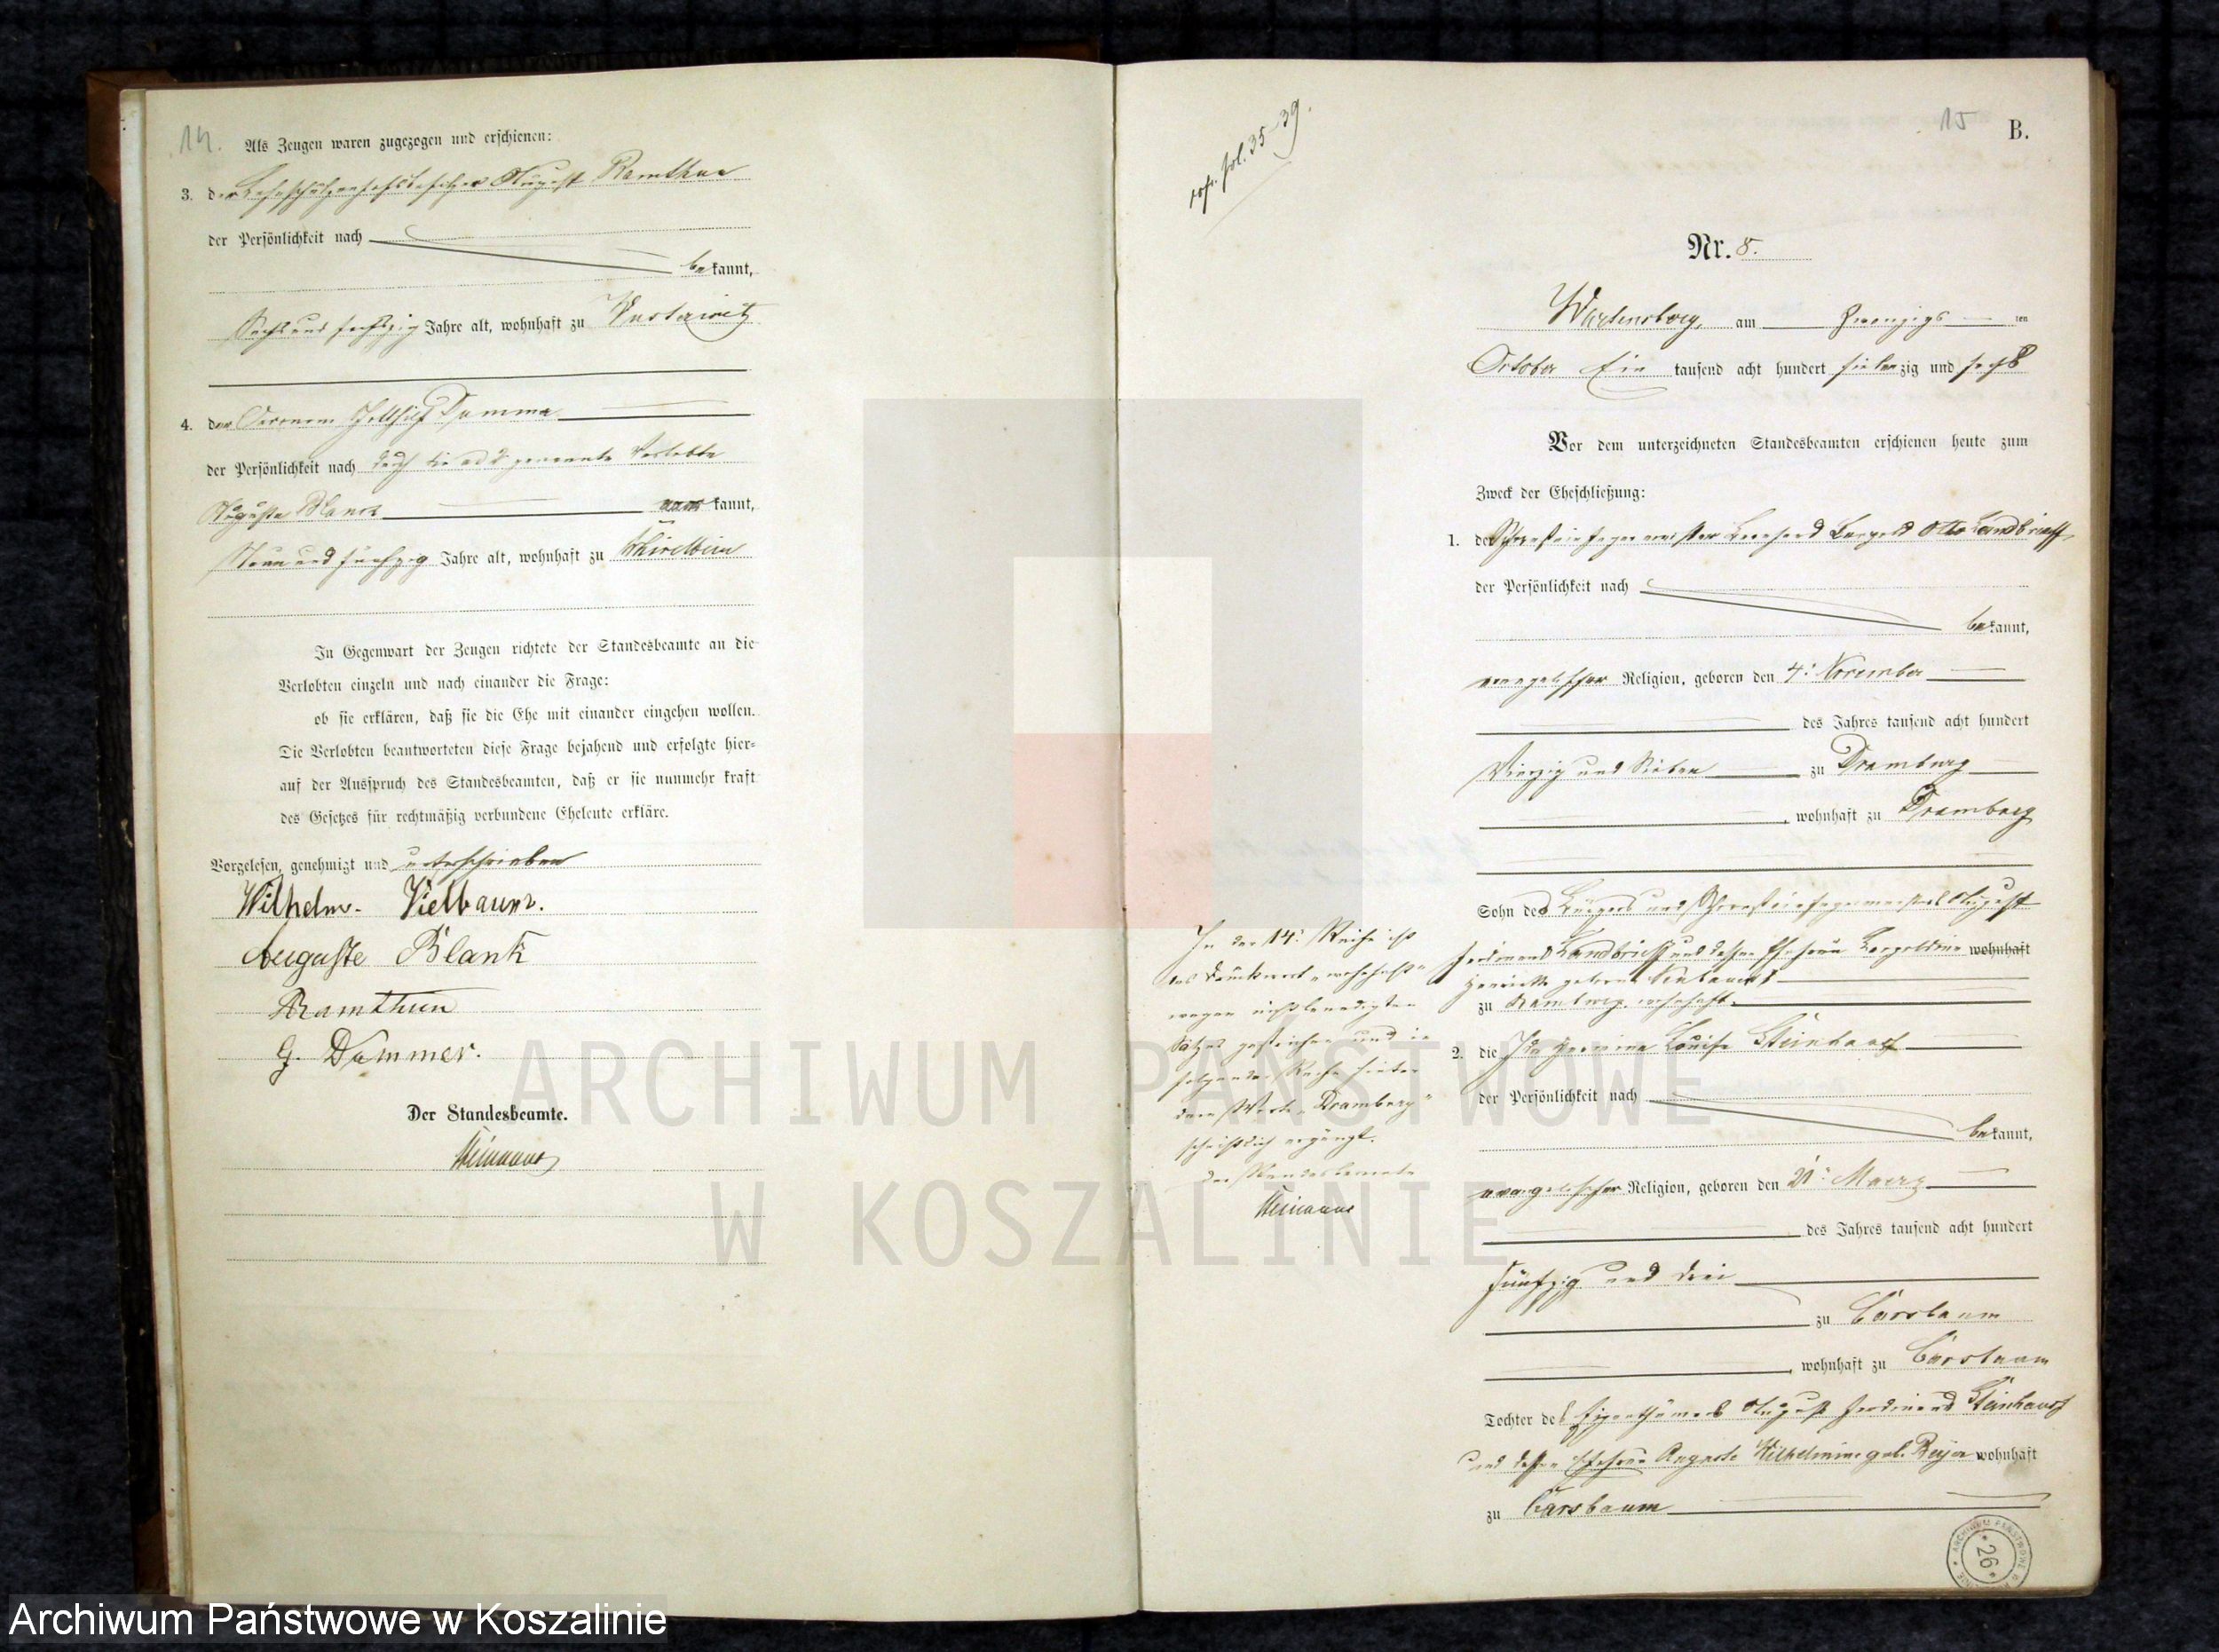 14.
Als Zeugen waren zugezogen und erschienen:
3. der Lehnschulzenhofsbesitzer August Ramthun
der Persönlichkeit nach
bekannt,
Sechs und sechszig Jahre alt, wohnhaft zu Wusterwitz
4. der Gotthilf Dummer
der Persönlichkeit nach durch die ad 2 genannte Verlobte
Auguste Blank kannt,
Neun und fünfzig Jahre alt, wohnhaft zu Schivelbein
In Gegenwart der Zeugen richtete der Standesbeamte an die
Verlobten einzeln und nach einander die Frage:
ob sie erklären, daß sie die Ehe mit einander eingehen wollen.
Die Verlobten beantworteten diese Frage bejahend und erfolgte hier=
auf der Ausspruch des Standesbeamten, daß er sie nunmehr kraft
des Gesetzes für rechtmäßig verbundene Eheleute erkläre.
Vorgelesen, genehmigt und unterschrieben
Wilhelm Vielbaum.
Auguste Blank
Ramthun
G. Dummer.
Der Standesbeamte.
fol. 35-39.
15
B.
Nr. 8.
Wartensberg, am Zwanzigs ten
October Ein tausend acht hundert siebenzig und sechs
Vor dem unterzeichneten Standesbeamten erschienen heute zum
Zweck der Eheschließung:
1. der Schornsteinfegermeister Bernhard Leopold Otto Landbrieff,
der Persönlichkeit nach
bekannt,
evangelischer Religion, geboren den 4. November
des Jahres tausend acht hundert
Vierzig und Sieben zu Dramburg
, wohnhaft zu Dramburg
Sohn des Bürgers und Schornsteinfegermeisters August
Ferdinand Landbrieff und dessen Ehefrau Leopoldine wohnhaft
Henriette geborne
zu Dramburg wohnhaft.
2. die Ida Louise Steinhauf
der Persönlichkeit nach
bekannt,
evangelischer Religion, geboren den 21. Maerz
des Jahres tausend acht hundert
fünfzig und drei
zu Carsbaum
, wohnhaft zu Carsbaum
Tochter des Eigenthümers August Ferdinand Steinhauf
und dessen Ehefrau Auguste Wilhelmine geb. Beyer wohnhaft
zu Carsbaum
In der 14. Reihe ist
das Druckwort „wohnhaft"
wegen nicht beendigten
Satzes gestrichen und in
folgender Reihe hinter
dem Worte „Dramburg"
schriftlich ergänzt.
Der Standesbeamte
ARCHIWUM PAŃSTWOWE
W KOSZALINIE
26
Archiwum Państwowe w Koszalinie